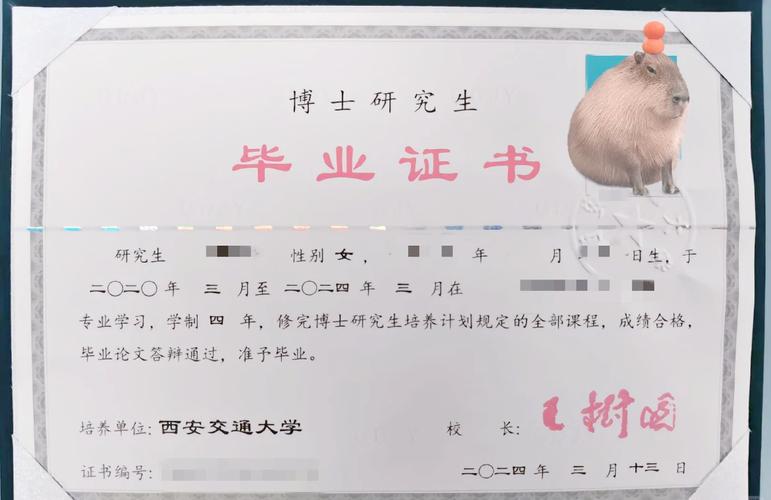 博士研究生
毕业证书
研究生 性别 女， 年 月 日生，于
二〇二〇年 三 月至 二〇二四年 三 月在
专业学习，学制 四 年，修完博士研究生培养计划规定的全部课程，成绩合格，
毕业论文答辩通过，准予毕业。
培养单位：西安交通大学 校 长：王树国
证书编号： 二〇二四 年 三 月 十三 日